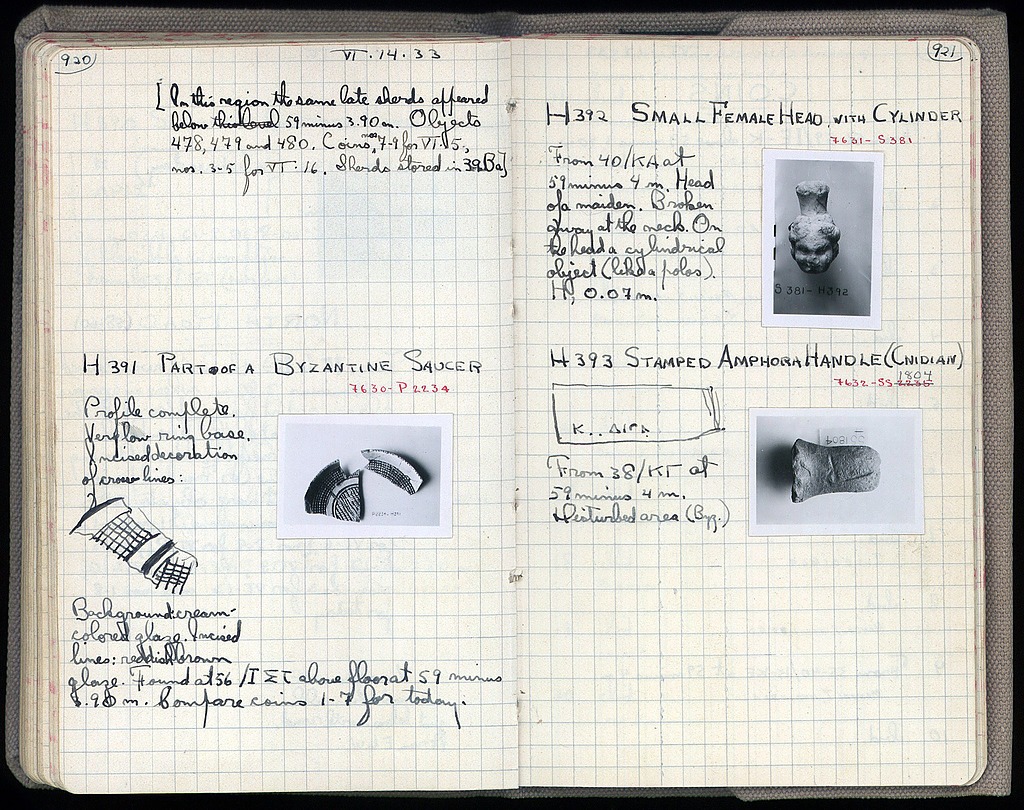 920
VI · 14 · 33
[ In this region the same late sherds appeared
below this level 59 minus 3.90 m. Objects
478, 479 and 480. Coins, nos. 7-9 for VI · 5,
nos. 3-5 for VI : 16. Sherds stored in 39 Ba]
H 391 PART OF A BYZANTINE SAUCER
7630 - P 2234
Profile complete.
Very low ring base.
Incised decoration
of cross lines:
Background: cream-
colored glaze. Incised
lines: reddish brown
glaze. Found at 56/ΙΣΤ above floor at 59 minus
.90 m. Compare coins 1-7 for today.
921
H 392 SMALL FEMALE HEAD WITH CYLINDER
7631 - S 381
From 40/ΚΑ at
59 minus 4 m. Head
of a maiden. Broken
away at the neck. On
the head a cylindrical
object (like a polos).
H, 0.07 m.
S 381 - H 392
H 393 STAMPED AMPHORA HANDLE (CNIDIAN)
1804
7632 - SS 2235
Κ . . ΔΙΓΑ
From 38/ΚΓ at
59 minus 4 m.
Disturbed area (Byz.)
SS 1804